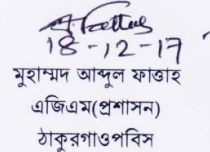 18-12-17
মুহাম্মদ আব্দুল ফাত্তাহ
এজিএম(প্রশাসন)
ঠাকুরগাওপবিস